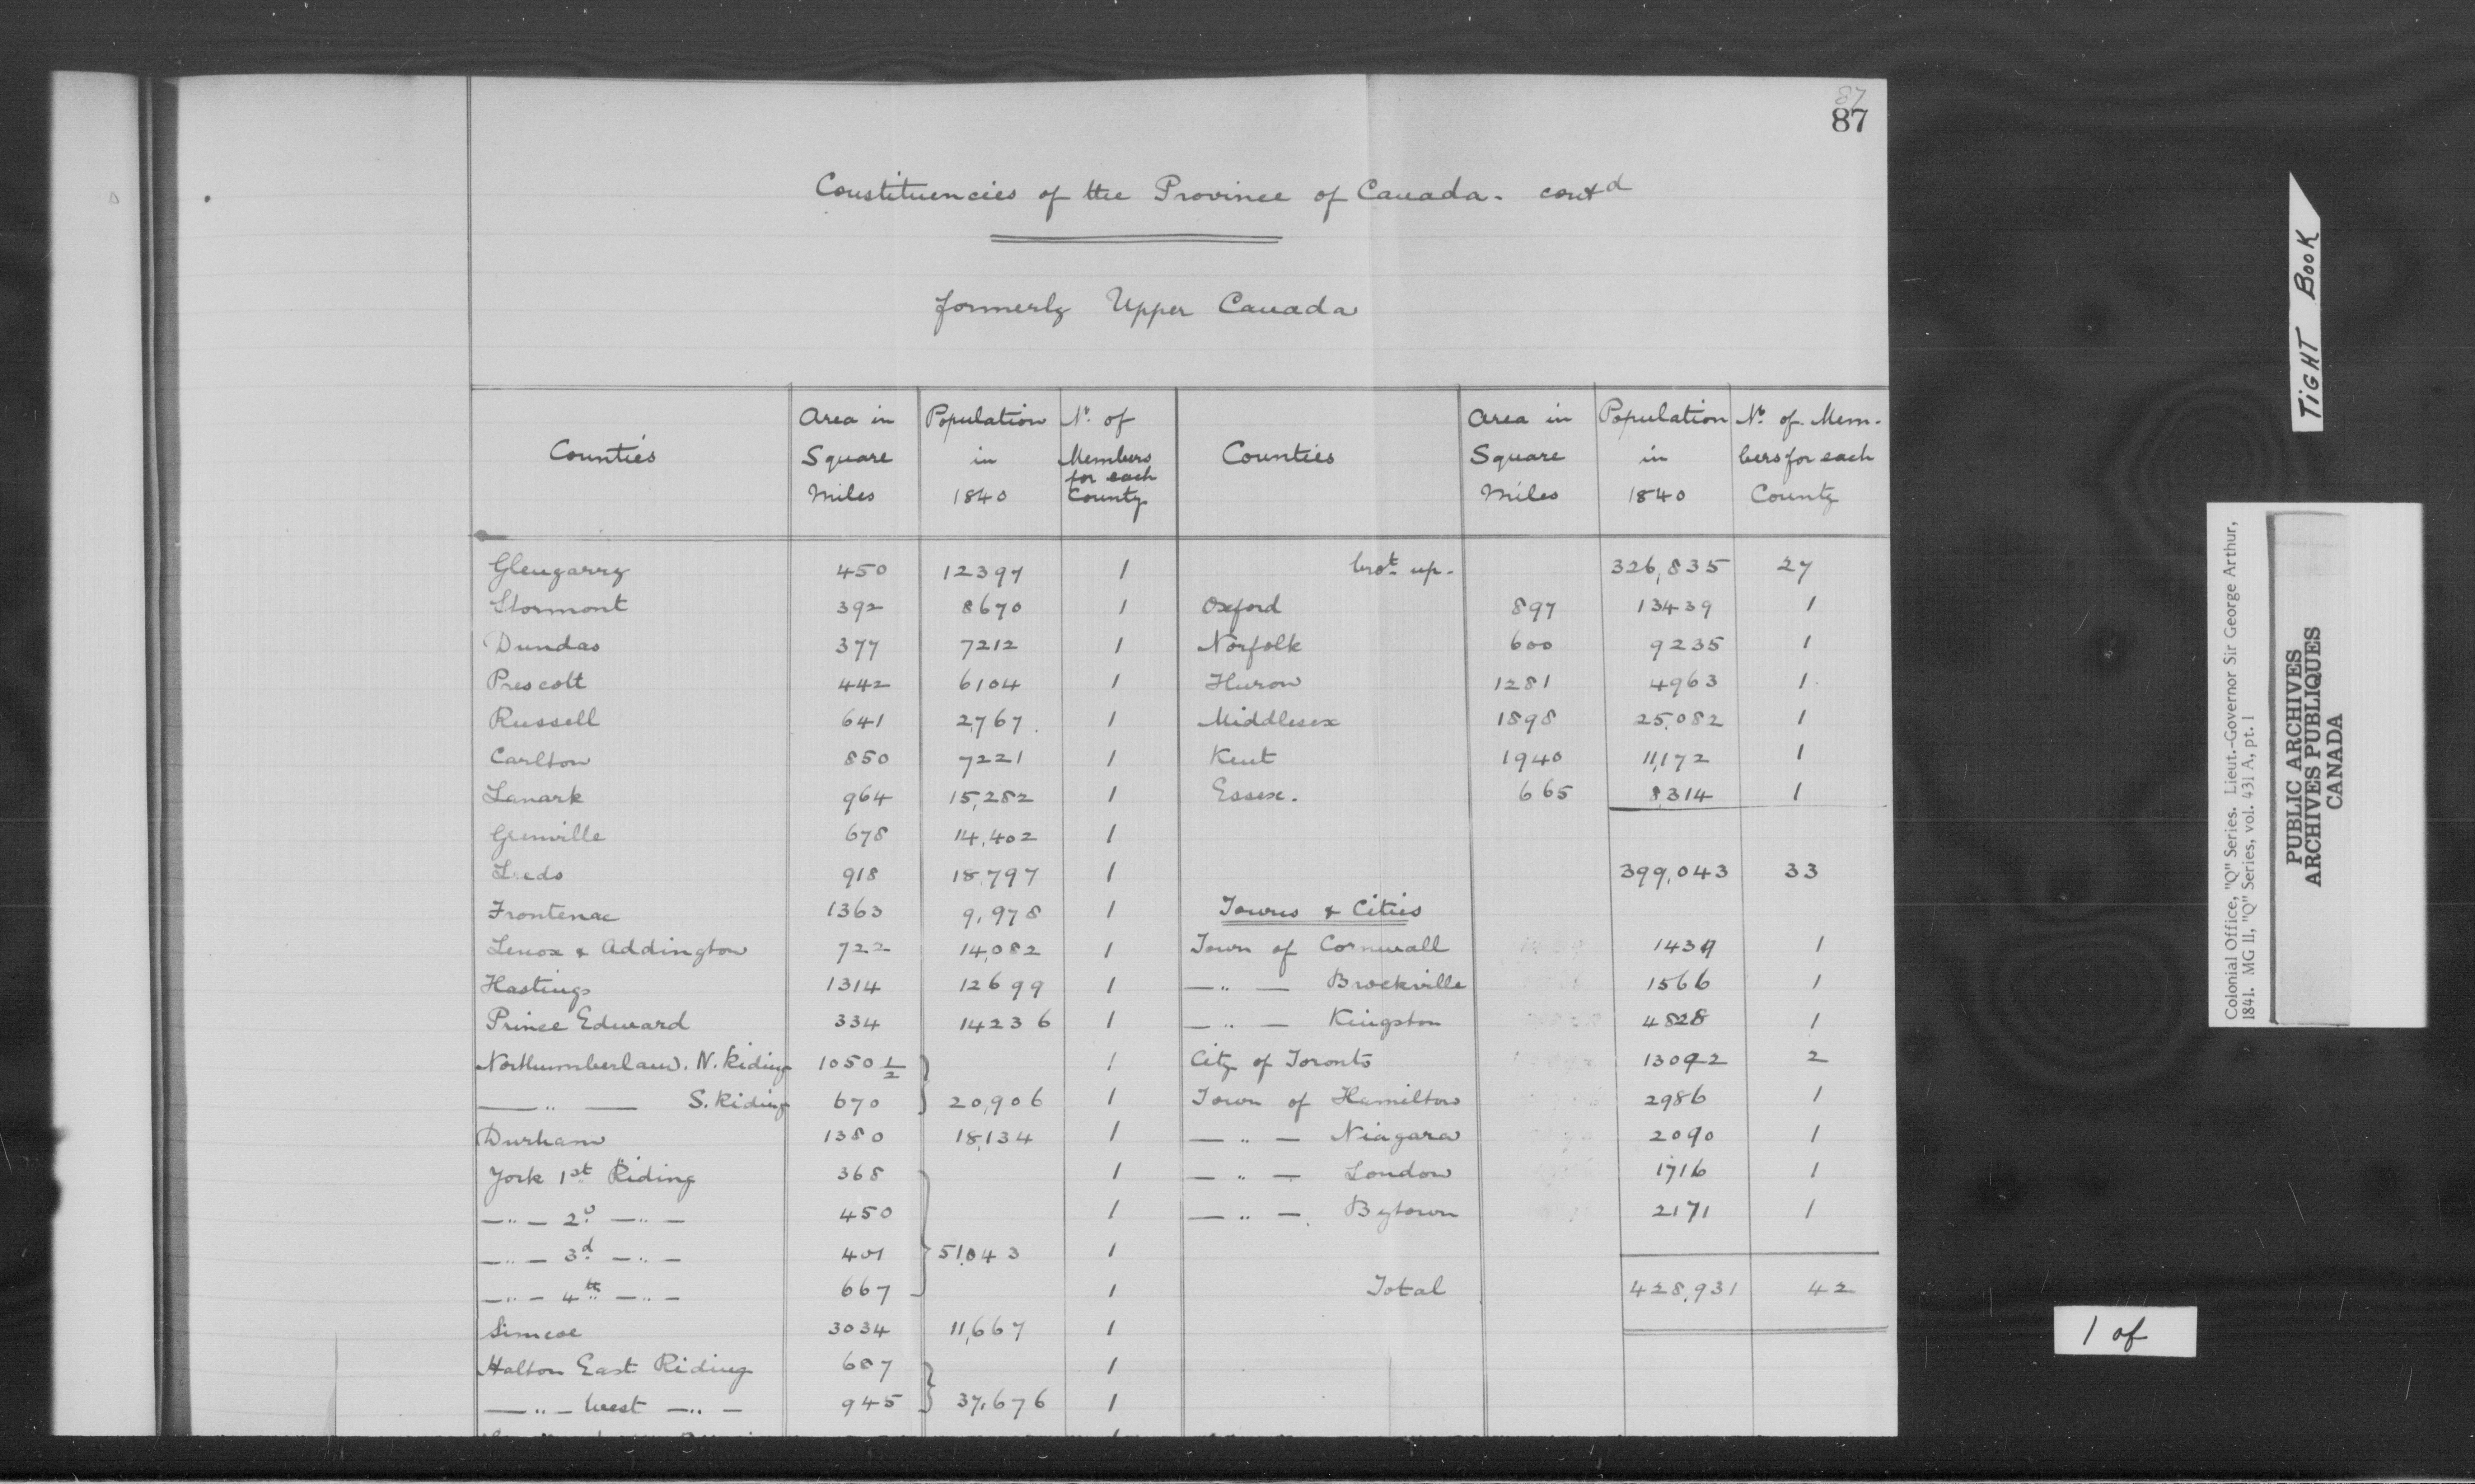 87
87
Constituencies of the Province of Canada. contd
formerly Upper Canada
Counties | Area in Square Miles | Population in 1840 | No. of Members for each County | Counties | Area in Square Miles | Population in 1840 | No. of Members for each County
Glengarry 450 12397 1 | brot. up. 326,835 27
Stormont 392 8670 1 | Oxford 897 13439 1
Dundas 377 7212 1 | Norfolk 600 9235 1
Prescott 442 6104 1 | Huron 1281 4963 1
Russell 641 2,767. 1 | Middlesex 1898 25,082 1
Carlton 850 7221 1 | Kent 1940 11,172 1
Lanark 964 15,282 1 | Essex. 665 8,314 1
Grenville 678 14,402 1
Leeds 918 18,797 1 | 399,043 33
Frontenac 1363 9,978 1 | Towns & Cities
Lenox & Addington 722 14,082 1 | Town of Cornwall 1439 1
Hastings 1314 12699 1 | —"— Brockville 1566 1
Prince Edward 334 14236 1 | —"— Kingston 4828 1
Northumberland. N. Riding 1050 1/2 1 | City of Toronto 13092 2
—"— S. Riding 670 20,906 1 | Town of Hamilton 2986 1
Durham 1380 18,134 1 | —"— Niagara 2090 1
York 1st Riding 368 1 | —"— London 1716 1
—"— 2d —"— 450 1 | —"— Bytown 2171 1
—"— 3d —"— 401 51,043 1
—"— 4th —"— 667 1 | Total 428,931 42
Simcoe 3034 11,667 1
Halton East Riding 687 1
—"— West —"— 945 37,676 1
TIGHT BOOK
Colonial Office, "Q" Series. Lieut.-Governor Sir George Arthur,
1841. MG 11, "Q" Series, vol. 431 A, pt. 1
PUBLIC ARCHIVES
ARCHIVES PUBLIQUES
CANADA
1 of